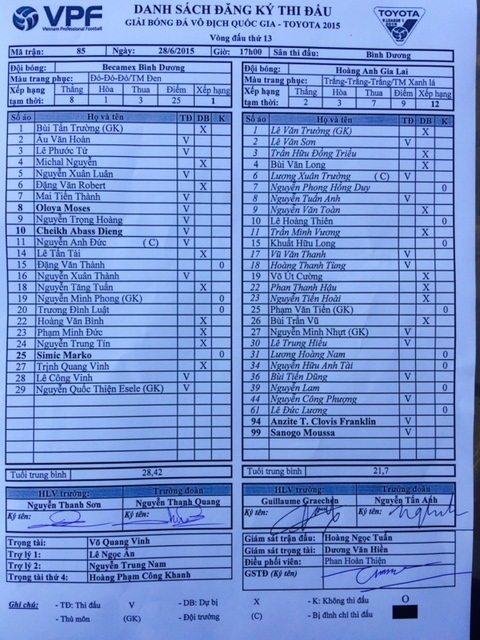 VPF
Vietnam Professional Football
DANH SÁCH ĐĂNG KÝ THI ĐẤU
GIẢI BÓNG ĐÁ VÔ ĐỊCH QUỐC GIA - TOYOTA 2015
Vòng đấu thứ 13
TOYOTA
Mã trận: 85 Ngày: 28/6/2015 Giờ: 17h00 Sân thi đấu: Bình Dương
Đội bóng: Becamex Bình Dương
Màu trang phục: Đỏ-Đỏ-Đỏ/TM Đen
Xếp hạng tạm thời: Thắng Hòa Thua Điểm Xếp hạng
8 1 3 25 1
Số áo Họ và tên TĐ DB K
1 Bùi Tấn Trường (GK) X
2 Âu Văn Hoàn V
3 Lê Phước Tứ V
4 Michal Nguyễn X
5 Nguyễn Xuân Luân V
6 Đặng Văn Robert X
7 Mai Tiến Thành V
8 Oloya Moses V
9 Nguyễn Trọng Hoàng V
10 Cheikh Abass Dieng V
11 Nguyễn Anh Đức (C) V
14 Lê Tấn Tài X
15 Đặng Văn Thành 0
16 Nguyễn Xuân Thành V
18 Nguyễn Tăng Tuấn X
19 Nguyễn Minh Phong (GK) 0
20 Trương Đình Luật 0
22 Hoàng Văn Bình X
23 Phạm Minh Đức X
24 Nguyễn Trung Tín X
25 Simic Marko 0
27 Trịnh Quang Vinh X
28 Lê Công Vinh V
29 Nguyễn Quốc Thiện Esele (GK) V
Tuổi trung bình 28,42
HLV trưởng: Trưởng đoàn
Nguyễn Thanh Sơn Nguyễn Thanh Quang
Ký tên: Ký tên:
Đội bóng: Hoàng Anh Gia Lai
Màu trang phục: Trắng-Trắng-Trắng/TM Xanh lá
Xếp hạng tạm thời: Thắng Hòa Thua Điểm Xếp hạng
2 3 7 9 12
Số áo Họ và tên TĐ DB K
1 Lê Văn Trường (GK) X
2 Lê Văn Sơn V
3 Trần Hữu Đông Triều X
4 Bùi Văn Long X
6 Lương Xuân Trường (C) V
7 Nguyễn Phong Hồng Duy 0
8 Nguyễn Tuấn Anh V
9 Nguyễn Văn Toàn X
10 Lê Hoàng Thiên 0
11 Trần Minh Vương X
15 Khuất Hữu Long 0
17 Vũ Văn Thanh V
18 Hoàng Thanh Tùng V
19 Võ Út Cường X
22 Phan Thanh Hậu X
23 Nguyễn Tiến Hoài X
25 Phạm Văn Tiến (GK) 0
26 Bùi Trần Vũ X
27 Nguyễn Minh Nhựt (GK) V
30 Lê Trung Hiếu V
31 Lương Hoàng Nam 0
34 Nguyễn Hữu Anh Tài 0
36 Bùi Tiến Dũng V
39 Nguyễn Lam 0
44 Nguyễn Công Phượng V
61 Lê Đức Lương 0
94 Anzite T. Clovis Franklin V
99 Sanogo Moussa V
Tuổi trung bình 21,7
HLV trưởng: Trưởng đoàn
Guillaume Graechen Nguyễn Tấn Anh
Ký tên: Ký tên:
Trọng tài: Võ Quang Vinh
Trợ lý 1: Lê Ngọc Ân
Trợ lý 2: Nguyễn Trung Nam
Trọng tài thứ 4: Hoàng Phạm Công Khanh
Giám sát trận đấu: Hoàng Ngọc Tuấn
Giám sát trọng tài: Dương Văn Hiền
Điều phối viên: Phan Hoàn Thiện
GSTĐ (Ký tên)
Ghi chú: - TĐ: Thi đấu V - DB: Dự bị X - K: Không thi đấu 0
- Thủ môn (GK) - Đội trưởng (C) - Bị đình chỉ thi đấu